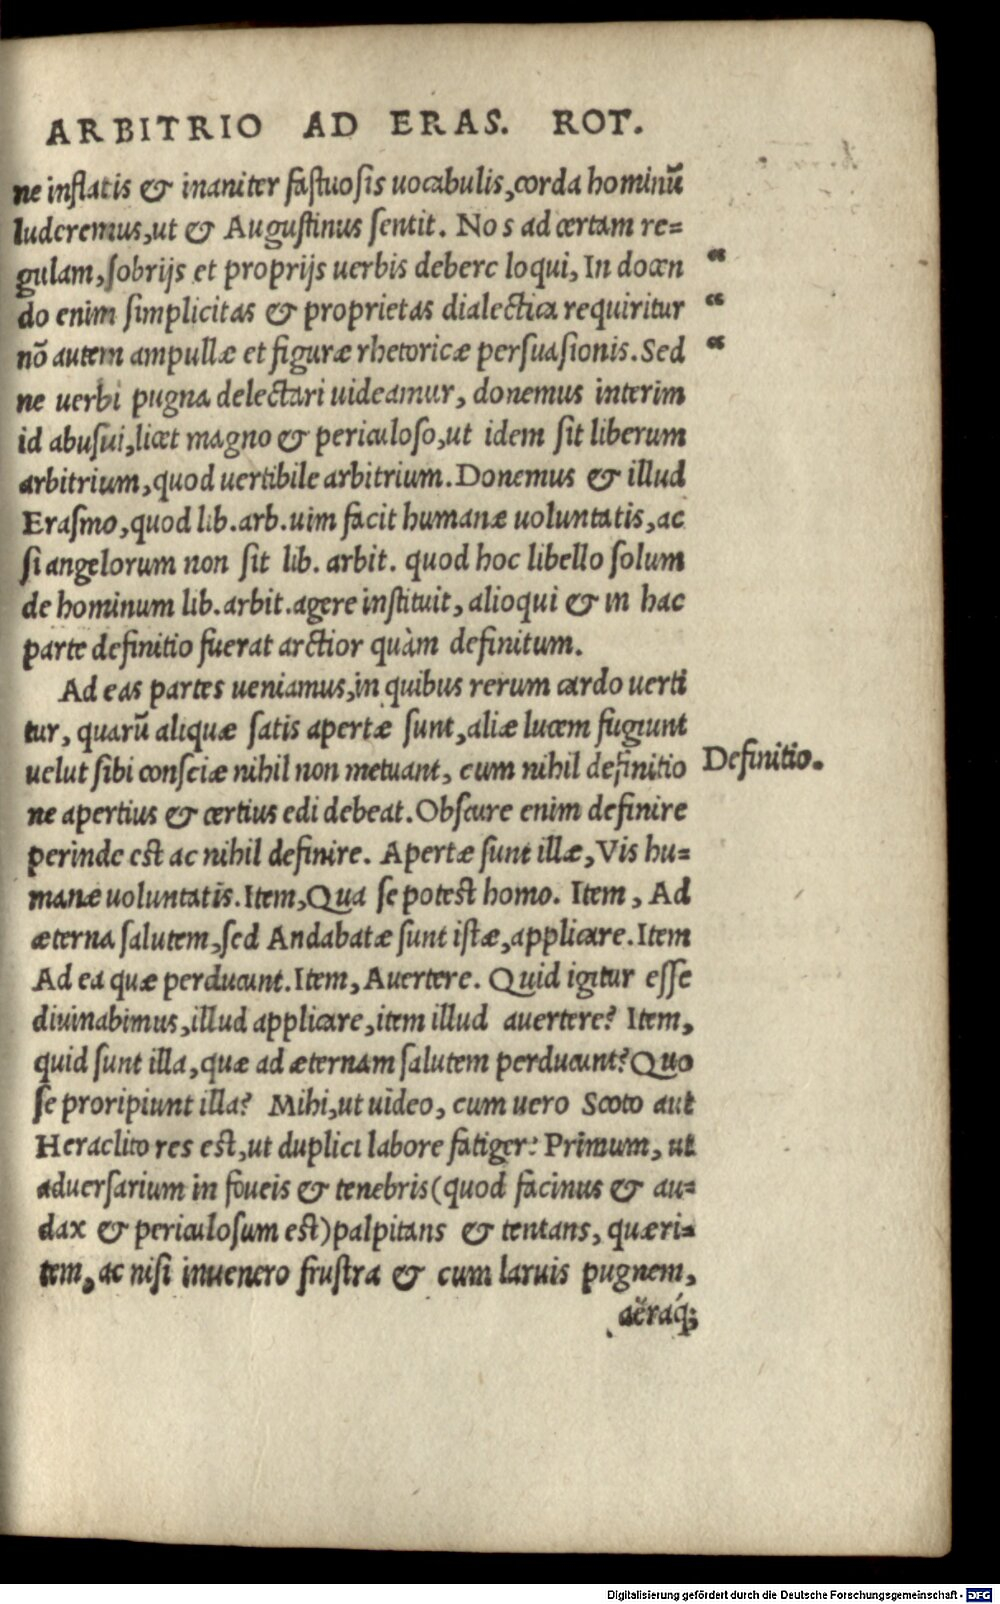 ARBITRIO AD ERAS. ROT.
ne inflatis & inaniter fastuosis uocabulis, corda hominū
luderemus, ut & Augustinus sentit. Nos ad certam re=
gulam, sobrijs et proprijs uerbis debere loqui, In docen
do enim simplicitas & proprietas dialectica requiritur
nō autem ampullæ et figuræ rhetoricæ persuasionis. Sed
ne uerbi pugna delectari uideamur, donemus interim
id abusui, licet magno & periculoso, ut idem sit liberum
arbitrium, quod uertibile arbitrium. Donemus & illud
Erasmo, quod lib. arb. uim facit humanæ uoluntatis, ac
si angelorum non sit lib. arbit. quod hoc libello solum
de hominum lib. arbit. agere instituit, alioqui & in hac
parte definitio fuerat arctior quàm definitum.
Ad eas partes ueniamus, in quibus rerum cardo uerti
tur, quarū aliquæ satis apertæ sunt, aliæ lucem fugiunt
uelut sibi consciæ nihil non metuant, cum nihil definitio
Definitio.
ne apertius & certius edi debeat. Obscure enim definire
perinde est ac nihil definire. Apertæ sunt illæ, Vis hu=
manæ uoluntatis. Item, Qua se potest homo. Item, Ad
æterna salutem, sed Andabatæ sunt istæ, applicare. Item
Ad ea quæ perducunt. Item, Auertere. Quid igitur esse
diuinabimus, illud applicare, item illud auertere? Item,
quid sunt illa, quæ ad æternam salutem perducunt? Quo
se proripiunt illa? Mihi, ut uideo, cum uero Scoto aut
Heraclito res est, ut duplici labore fatiger: Primum, ut
aduersarium in foueis & tenebris (quod facinus & au=
dax & periculosum est) palpitans & tentans, quæri=
tem, ac nisi inuenero frustra & cum laruis pugnem,
aëraq́;
Digitalisierung gefördert durch die Deutsche Forschungsgemeinschaft - DFG